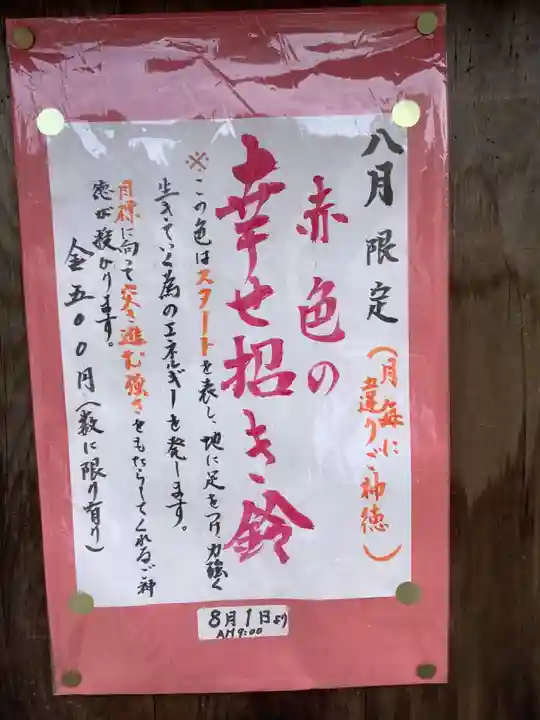 八月限定
(月毎に
違うご神徳)
赤色の
幸せ招き鈴
※この色はスタートを表し、地に足をつけ力強く
生きていく為のエネルギーを発します。
目標に向って突き進む強さをもたらしてくれるご神
徳が授かります。
金五〇〇円(数に限り有り)
8月1日より
AM9:00